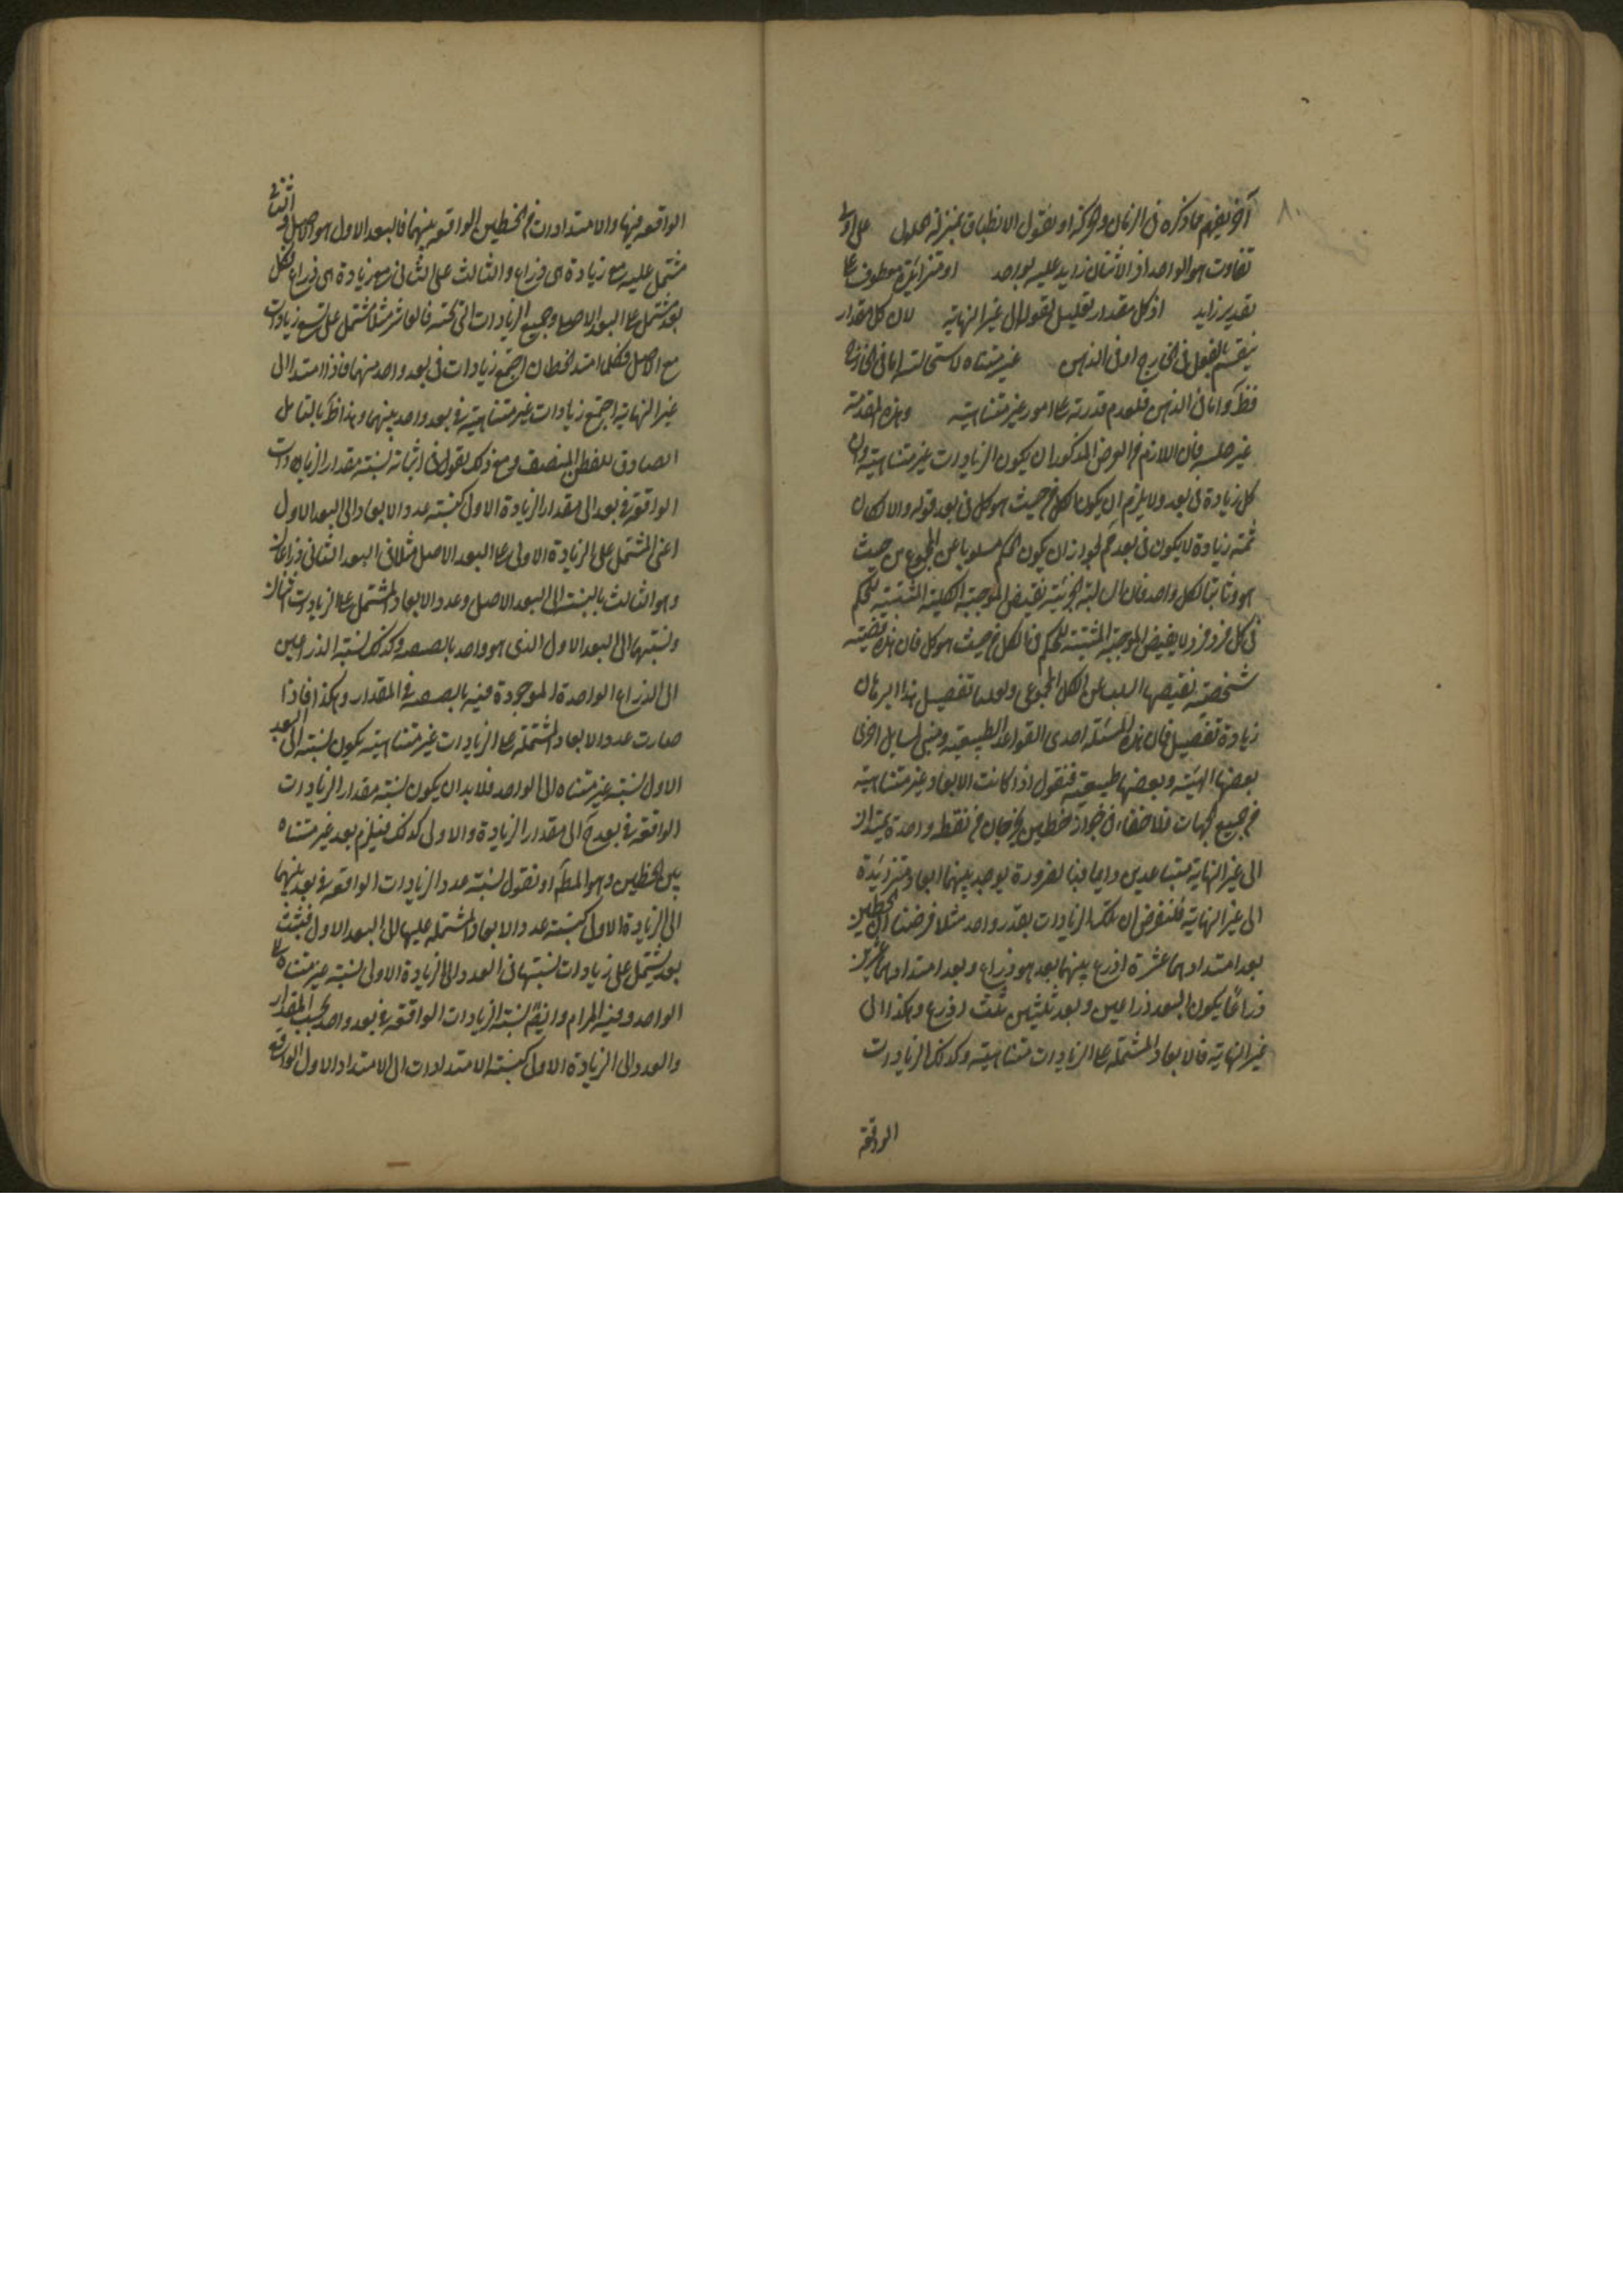 ٨٠
آخر يفهم مما ذكره فى الزمان والحركة او نقول الانطباق بمنزلة الحلول على اولى
تفاوت هو الواحد اذ الاثنان زايد عليه بواحد او متزايدة معطوف على
تقدير زايد اذ كل مقدار تعليل لقوله الى غير النهاية لان كل مقدار
ينقسم بالفعل فى الخارج او فى الذهن غير متناه لاستحالته اما فى الخارج
فظ واما فى الذهن فلعدم قدرته على امور غير متناهية وهذه المقدمة
غير مسلمة فان اللازم من الفرض المذكور ان يكون الزيادات غير متناهية وان
كل زيادة فى بعد ولا يلزم ان يكون الكل من حيث هو كل فى بعد قوله والا لكان
ثمة زيادة لا يكون فى بعد مم لجواز ان يكون الحكم مسلوبا عن المجموع من حيث
هو وثابتا لكل واحد فان السالبة الجزئية نقيض الموجبة الكلية المثبتة للحكم
فى كل فرد فرد لا نقيض الموجبة المثبتة للحكم فى الكل من حيث هو كل فان هذه قضية
شخصية نقيضها السلب عن الكل المجموعى ولعلنا تفصيل هذا البرهان
زيادة تفصيل فان هذه المسئلة احدى القواعد الطبيعية ومبنى لمسايل اخرى
بعضها الهية وبعضها طبيعية فنقول اذا كانت الابعاد غير متناهية
من جميع الجهات فلا خفاء فى جواز خطين يخرجان من نقطة واحدة يمتدان
الى غير النهاية متباعدين دايما فبالضرورة يوجد بينهما ابعاد متزايدة
الى غير النهاية فلنفرض ان تلك الزيادات بقدر واحد مثلا فرضنا ان الخطين
بعد امتدادهما عشرة اذرع بينهما بعد هو ذراع وبعد امتدادهما عشرين
ذراعا يكون البعد ذراعين وبعد ثلثين ثلث اذرع وهكذا الى
غير النهاية فالابعاد المشتملة على الزيادات متناهية وكذلك الزيادات
الواقعة
الواقعة فيها والامتدادات من الخطين الواقعة بينهما فالبعد الاول هو الاصل والثانى
مشتمل عليه مع زيادة هى ذراع والثالث على الثانى مع زيادة هى ذراع فكل
بعد مشتمل على البعد الاصل وجميع الزيادات التى تحته فالعاشر مثلا مشتمل على تسع زيادات
مع الاصل فكلما امتد الخطان اجتمع زيادات فى بعد واحد منها فاذا امتدا الى
غير النهاية اجتمع زيادات غير متناهية فى بعد واحد بينهما وهذا ظ بالتامل
الصادق للفطن المنصف ومع ذلك نقول فى اثباته نسبة مقدار الزيادات
الواقعة فى بعد الى مقدار الزيادة الاولى كنسبة عدد الابعاد الى البعد الاول
اعنى المشتمل على الزيادة الاولى على البعد الاصل مثلا فى البعد الثانى ذراعان
وهو الثالث بالنسبة الى البعد الاصل وعدد الابعاد المشتمل على الزيادات اثنان
ونسبتهما الى البعد الاول الذى هو واحد بالضعف وكذلك نسبة الذراعين
الى الذراع الواحدة الموجودة فيه بالضعف فى المقدار وهكذا فاذا
صارت عدد الابعاد المشتملة على الزيادات غير متناهية يكون نسبته الى البعد
الاول نسبة غير متناه الى الواحد فلا بد ان يكون نسبة مقدار الزيادات
الواقعة فى بعد ح الى مقدار الزيادة والاولى كذلك فيلزم بعد غير متناه
بين الخطين وهو المط او نقول نسبة عدد الزيادات الواقعة فى بعد بينهما
الى الزيادة الاولى كنسبة عدد الابعاد المشتملة عليها الى البعد الاول فثبت
بعد يشتمل على زيادات نسبتها فى العدد الى الزيادة الاولى نسبة غير متناه الى
الواحد وفيه المرام وايضا نسبة الزيادات الواقعة فى بعد واحد بحسب المقدار
والعدد الى الزيادة الاولى كنسبة الامتدادات الى الامتداد الاول الواقعة